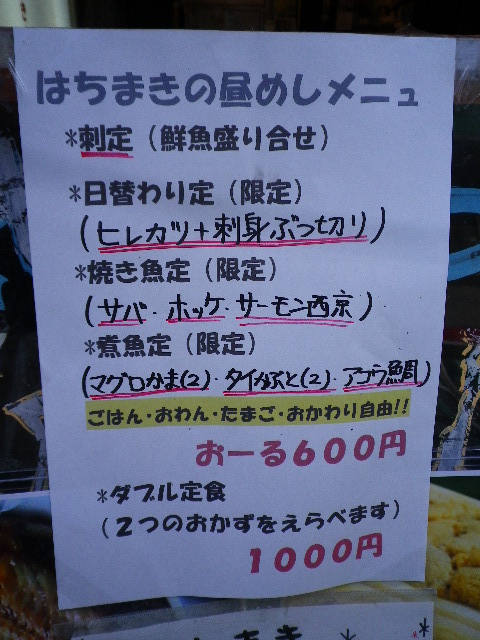 はちまきの昼めしメニュ
*刺定（鮮魚盛り合せ）
*日替わり定（限定）
（ヒレカツ+刺身ぶつ切り）
*焼き魚定（限定）
（サバ・ホッケ・サーモン西京）
*煮魚定（限定）
（マグロかま(2)・タイかぶと(2)・アコウ鯛）
ごはん・おわん・たまご・おかわり自由!!
おーる600円
*ダブル定食
（2つのおかずをえらべます）
1000円